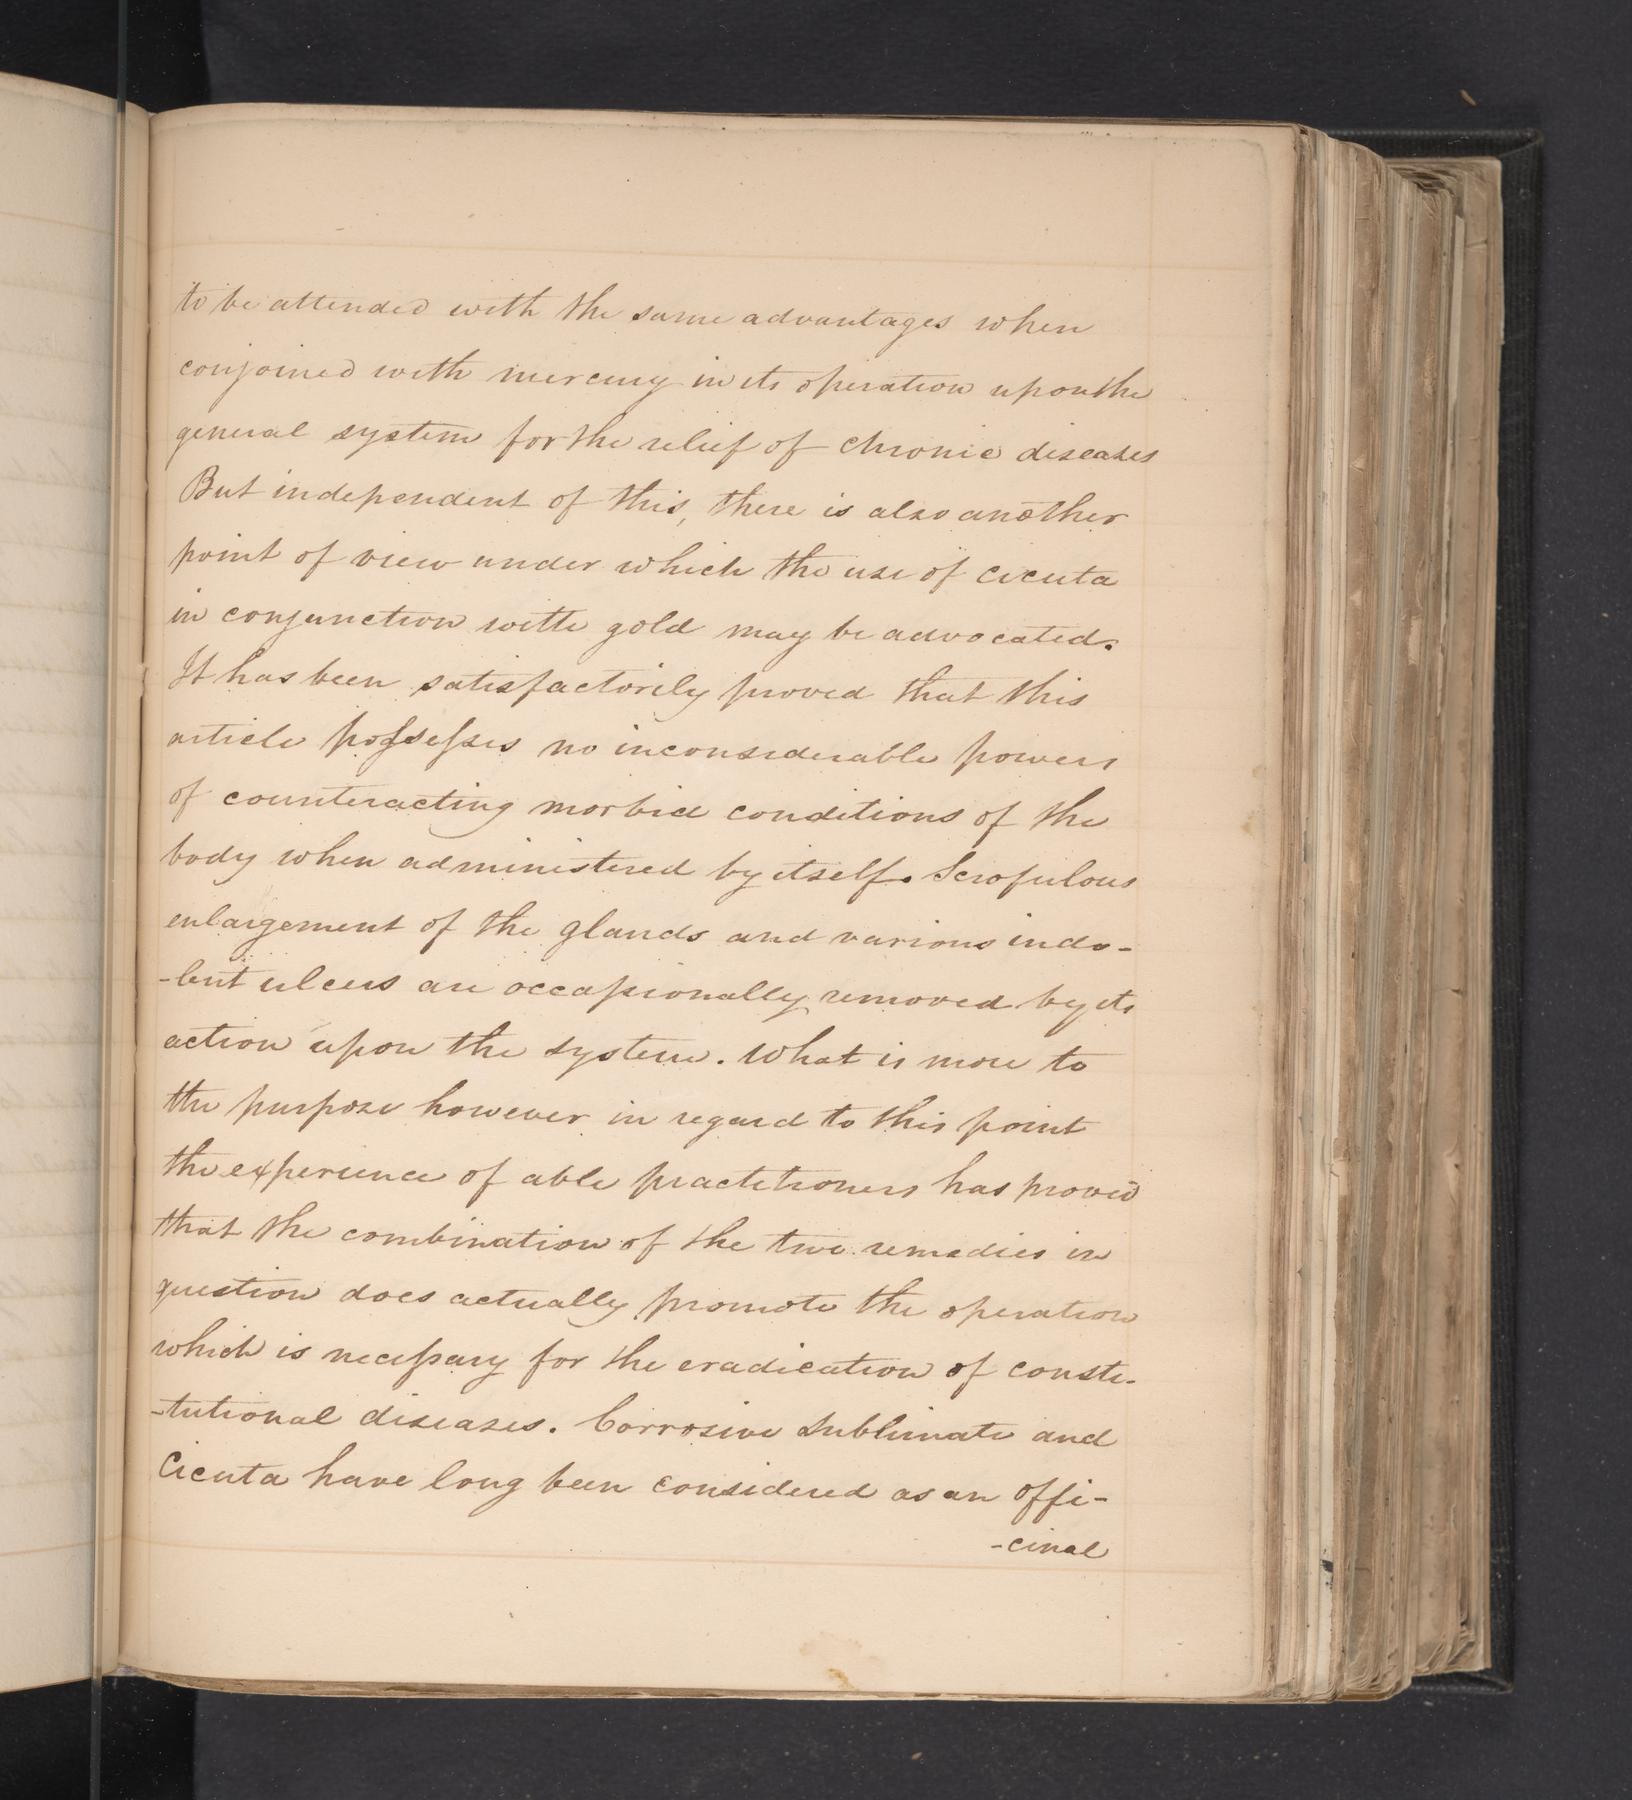 to be attended with the same advantages when
conjoined with mercury in its operation upon the
general system for the relief of chronic diseases
But independent of this, there is also another
point of view under which the use of cicuta
in conjunction with gold may be advocated.
It has been satisfactorily proved that this
article possesses no inconsiderable powers
of counteracting morbid conditions of the
body when administered by itself. Scrofulous
enlargement of the glands and various indo-
-lent ulcers are occassionally removed by its
action upon the system. What is more to
the purpose however in regard to this point
the experience of able practitioners has proved
that the combination of the two remedies in
question does actually promote the operation
which is necessary for the eradication of consti-
-tutional diseases. Corrosive Sublimate and
Cicuta have long been considered as an offi-
-cinal